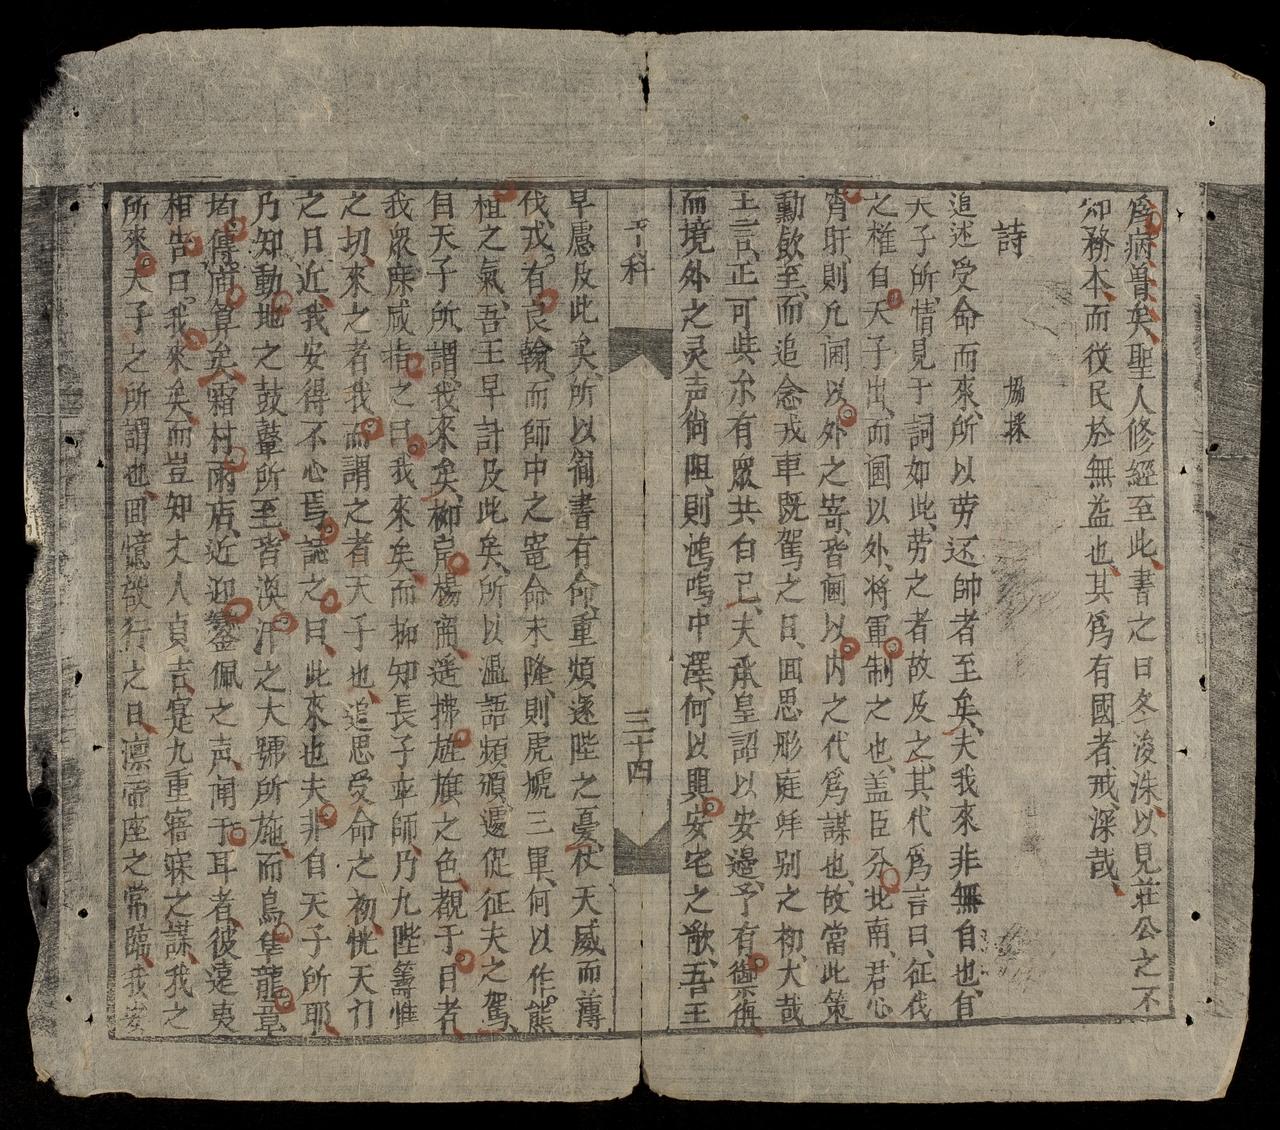 爲病魯矣聖人修經至此書之曰冬浚洙以見莊公之不
知務本而役民於無益也其爲有國者戒深哉
詩
追述受命而來所以劳还帥者至矣夫我來非無自也自
天子所情見于詞如此劳之者故及之其代爲言曰征伐
之權自天子出而閫以外将軍制之也盖臣分北南君心
宵旰則凢閫以外之寄皆閫以内之代爲謀也故當此策
勳飲至而追念戎車既駕之日回思彤庭拜别之初大哉
王言正可與尔有衆共白已夫承皇詔以安邊予有禦侮
而境外之灵声尚阻則鴻嗚中澤何以興安宅之歌吾王
子科
三十四
早慮及此矣所以簡書有命重煩逐陛之憂仗天威而薄
伐戎有良翰而師中之寵命未隆則虎貔三軍何以作熊
植之氣吾王早計及此矣所以温語頻頒遽促征夫之駕
自天子所謂我來矣柳岸楊衢遥拂旌旗之色覩于目者
我衆庶咸指之曰我來矣而抑知長子率師乃九陛籌惟
之切來之者我而謂之者天子也追思受命之初恍天行
之日近我安得不心焉誌之曰此來也夫非自天子所耶
乃知動地之鼓鼙所至皆渙汗之大號所施而鳥隼龍章
均傳廟算矣霜村雨店近迎鑾佩之声聞于耳者彼遠夷
相告曰我來矣而豈知丈人貞吉寔九重寤寐之謀我之
所來天子之所謂也回憶啟行之日凛帝座之常臨我安